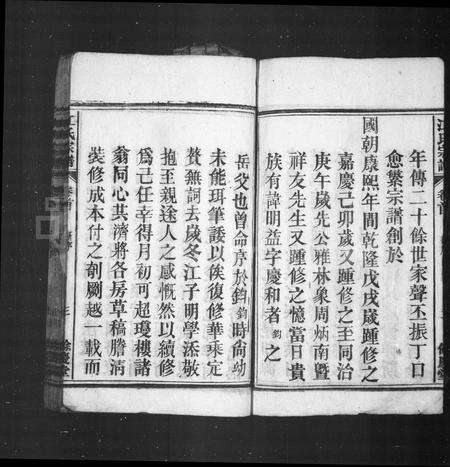 年傳二十餘世家聲丕振丁口
愈繁宗譜創於
國朝康熙年間乾隆戊戌歲踵修之
嘉慶己卯歲又踵修之至同治
庚午歲先公雅林泉周炳南曁
祥友先生又踵修之憶當日貴
族有諱明益字慶和者鈞之
岳父也曾命序於鈞鈞時尚幼
未能珥筆諉以俟復修華乘定
贅無詞去歲冬江子明學添敬
抱至親途人之感慨然以續修
爲己任幸得月初可超瓊樓諸
翁同心共濟將各房草稿謄淸
裝修成本付之剞劂越一載而
江氏宗譜
卷首